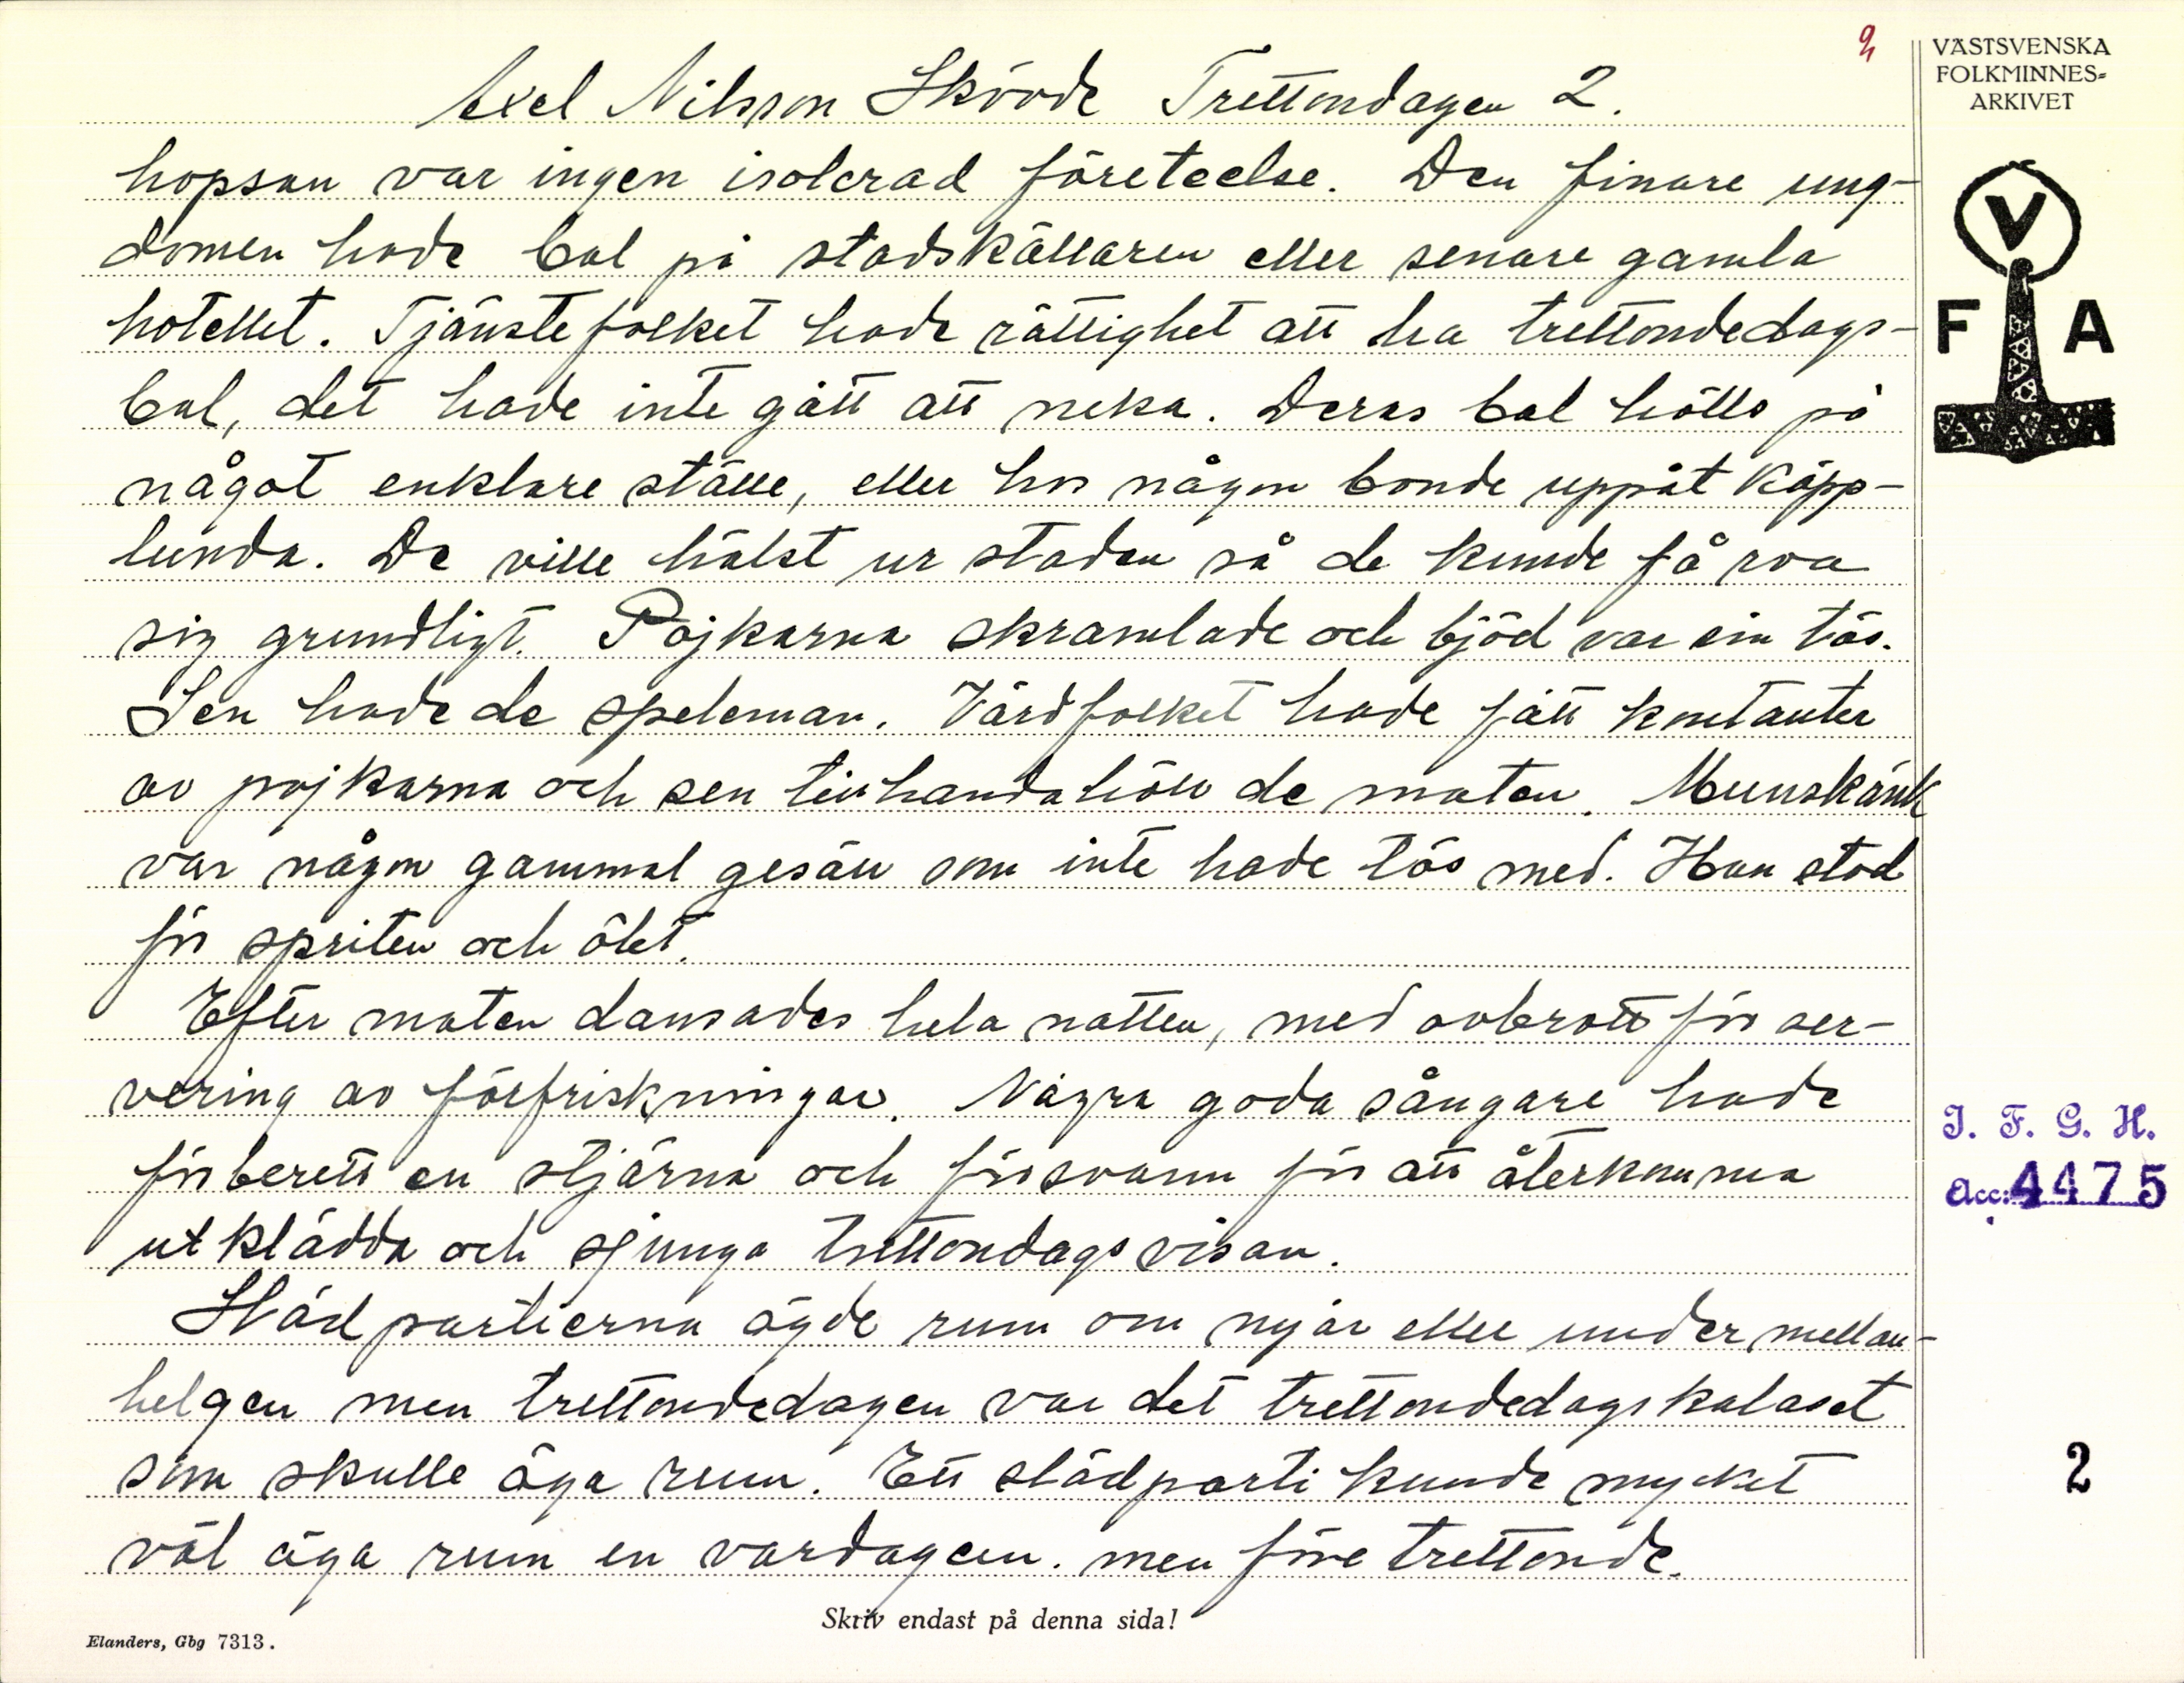 2
VÄSTSVENSKA
FOLKMINNES-
ARKIVET
Axel Nilsson Skövde Trettondagen 2.
hopsan var ingen isolerad företeelse. Den finare ung-
domen hade bal på stadskällaren eller senare gamla
hotellet. Tjänstefolket hade rättighet att ha trettondedags-
bal, det hade inte gått att neka. Deras bal hölls på
något enklare ställe, eller hos någon bonde uppåt Käpp-
lunda. De ville hälst ur staden så de kunde få roa
sig grundligt. Pojkarna skramlade och bjöd var sin tös.
Sen hade de speleman. Värdfolket hade fått kontanter
av pojkarna och sen tillhandahöll de maten. Munskänk
var någon gammal gesäll som inte hade tös med. Han stod
för spriten och ölet.
Efter maten dansades hela natten, med avbrott för ser-
vering av förfriskningar. Några goda sångare hade
förberett en stjärna och försvann för att återkomma
utklädda och sjunga trettondagsvisan.
Slädpartierna ägde rum om nyår eller under mellan-
helgen men trettondedagen var det trettondedagskalaset
som skulle äga rum. Ett slädparti kunde mycket
väl äga rum en vardagen. men före trettonde.
V
F A
I. F. G. H.
Acc: 4475
2
Skriv endast på denna sida!
Elanders, Gbg 7313.